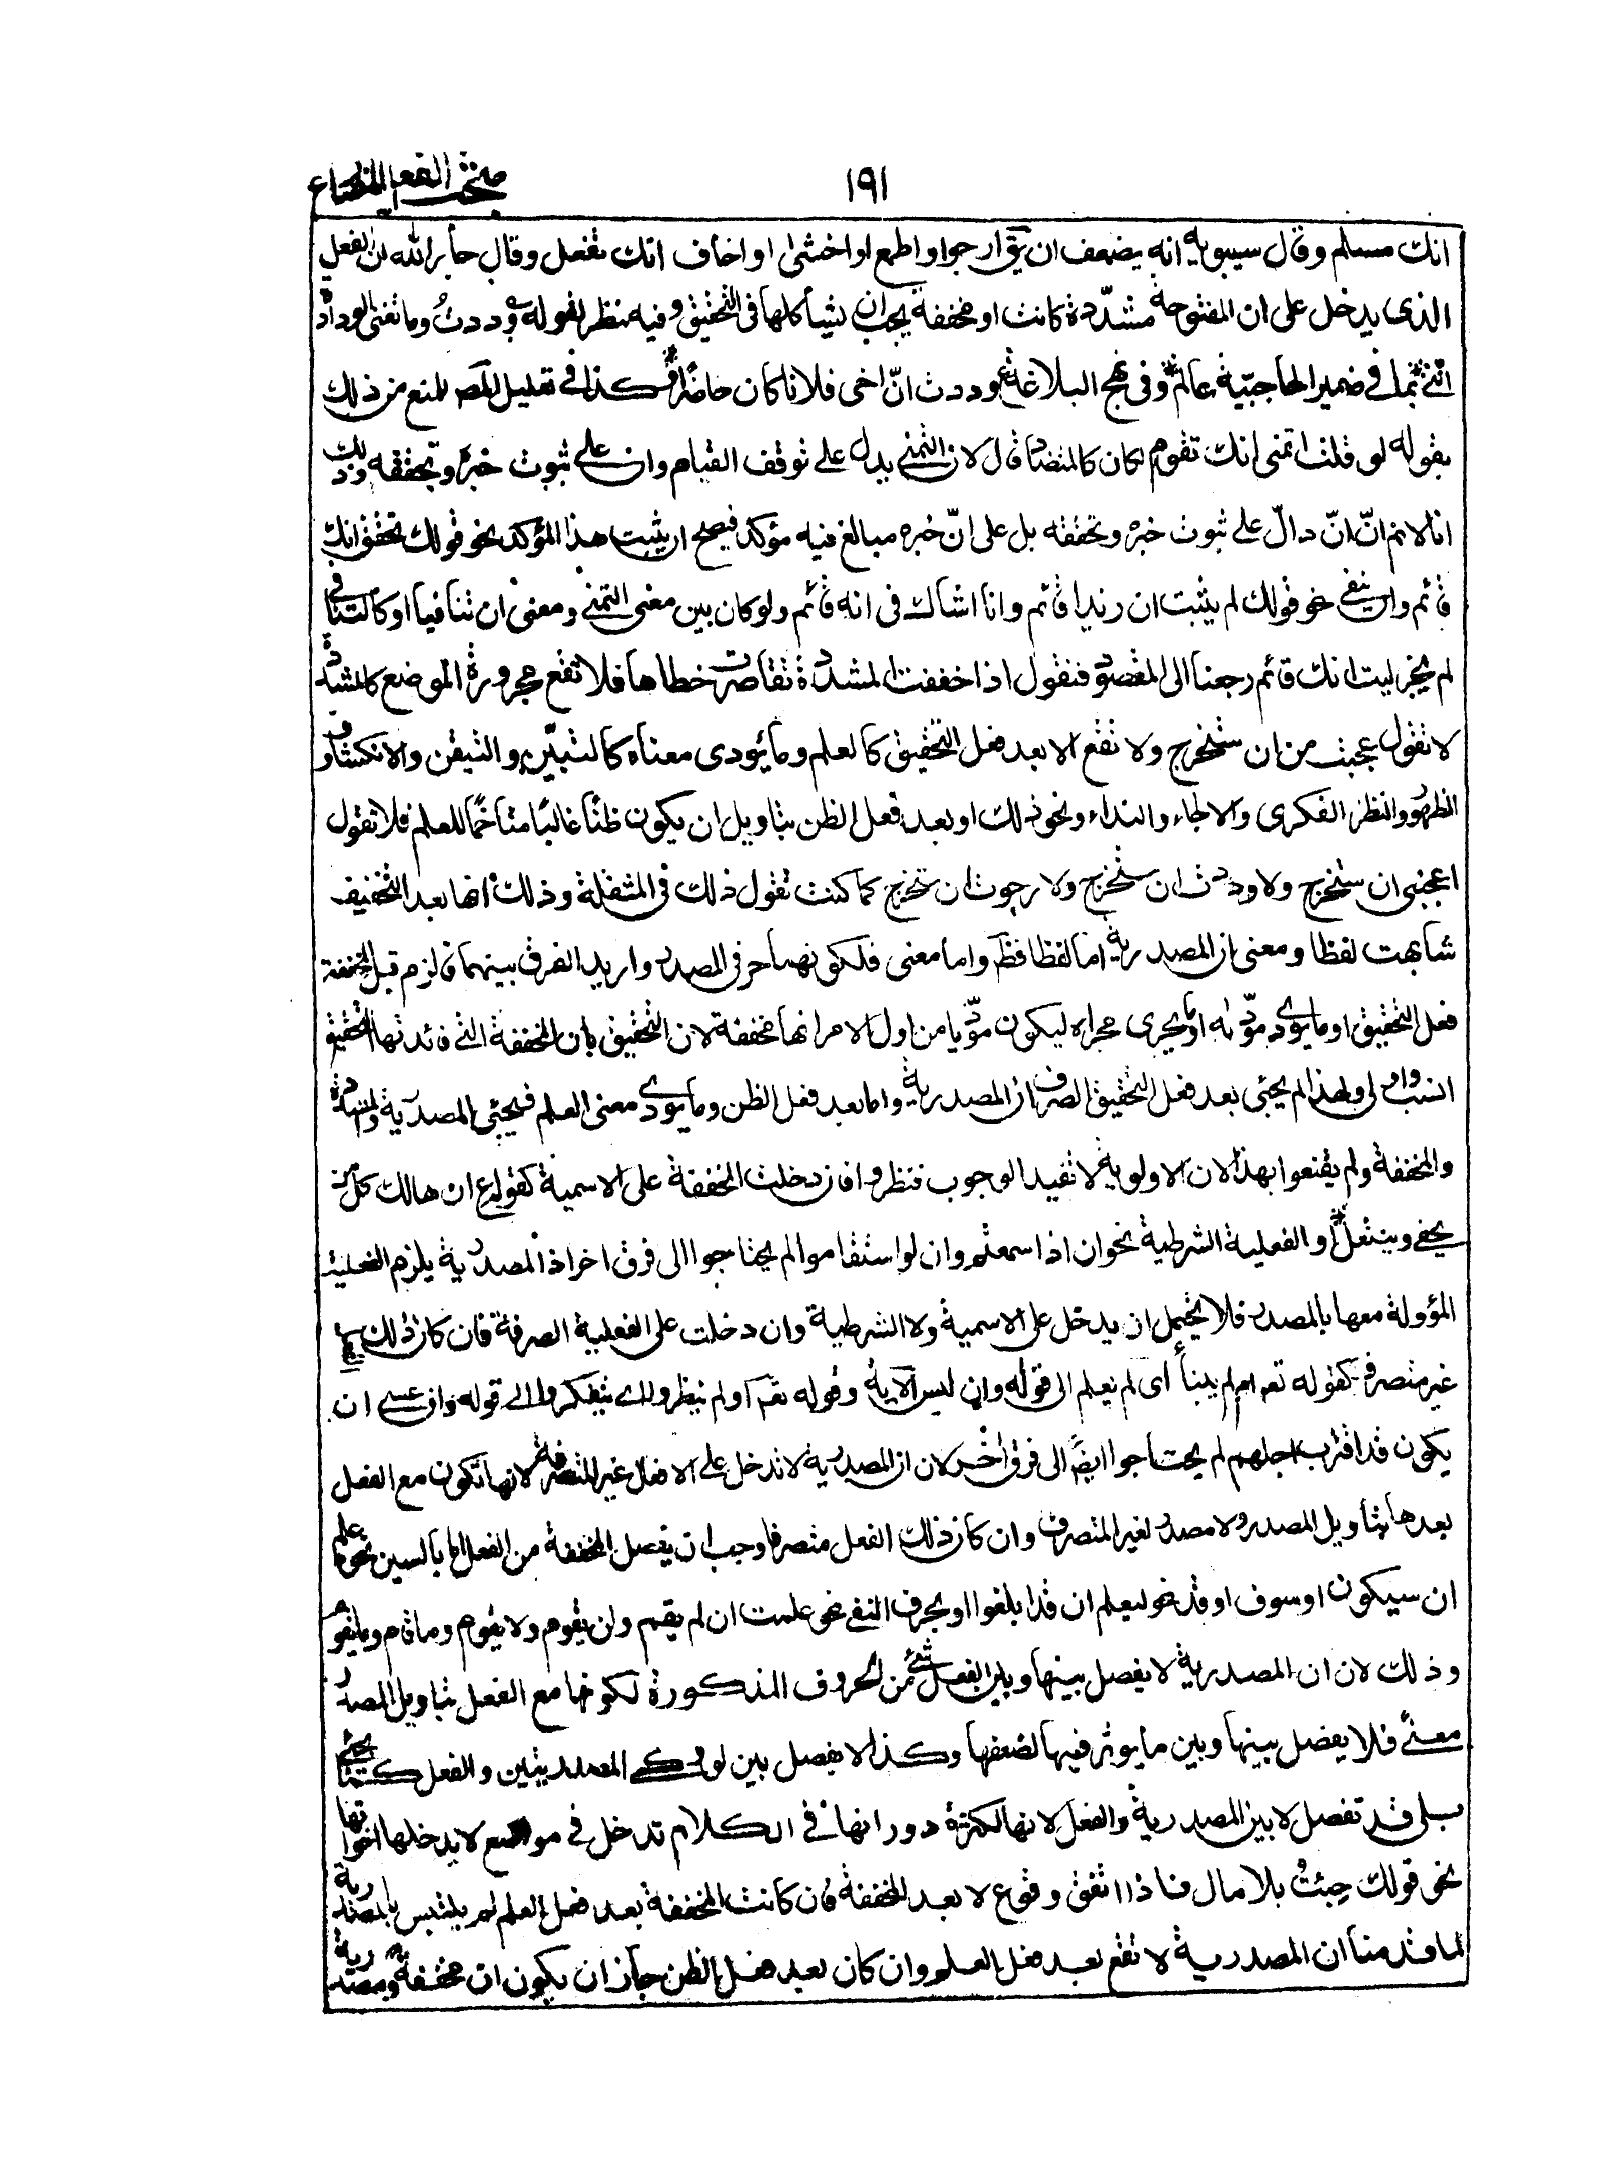 ١٩١
مبحث الفعل المضارع
انك مسلم وقال سيبويه انه يضعف ان يق ارجوا او اطمع او اخشى او اخاف انك تفعل وقال جار الله ان الفعل
الذى يدخل على ان المفتوحة مشدّدة كانت او مخففة يجب ان يشاكلها فى التحقيق وفيه نظر لقوله وددتُ وما تغنى الودادة
انّنى بما فى ضمير الحاجبيّة عالم وفى نهج البلاغة وددت انّ اخى فلانا كان حاضرًا وكذا فى تعليل المص للمنع من ذلك
بقوله لو قلت اتمنى انك تقوم لكان كالمتضاد قال لان التمنى يدل على توقف القيام وان على ثبوت خبره وتحققه وذلك
انا لا نم انّ انّ دالّ على ثبوت خبره وتحققه بل على انّ خبره مبالغ فيه مؤكد فيصح ان يثبت هذا المؤكد نحو قولك تحقق انك
قائم وان ينفى نحو قولك لم يثبت ان زيدا قائم وانا اشك فى انه قائم ولو كان بين معنى التمنى ومعنى ان تنافيا او كالتنافى
لم يجز ليت انك قائم رجعنا الى المقصود فنقول اذا خففت المشددة تقاصرت خطاها فلا تقع مجرورة الموضع كالمشددة
لا تقول عجبت من ان ستخرج ولا تقع الا بعد فعل التحقيق كالعلم وما يؤدى معناه كالتبيّن والتيقن والانكشاف و
الظهور والنظر الفكرى والالجاء والنداء ونحو ذلك او بعد فعل الظن بتاويل ان يكون ظنًا غالبًا متاخمًا للعلم فلا تقول
اعجبنى ان ستخرج ولا وددت ان ستخرج ولا رجوت ان ستخرج كما كنت تقول ذلك فى المثقلة وذلك انها بعد التخفيف
شابهت لفظا ومعنى ان المصدرية اما لفظا فظ واما معنى فلكونهما حرفى المصدر واريد الفرق بينهما فالزم قبل المخففة
فعل التحقيق او ما يؤدى مؤدّاه او ما يجرى مجراه ليكون مؤذيا من اول الامر انها مخففة لان التحقيق بان المخففة التى فائدتها التحقيق
انسب واولى ولهذا لم يجئ بعد فعل التحقيق الصرف ان المصدرية واما بعد فعل الظن وما يؤدى معنى العلم فيجئ المصدرية والمشددة
والمخففة ولم يقنعوا بهذا لان الاولوية لا تفيد الوجوب فنظروا فان دخلت المخففة على الاسمية كقوله ع ان هالك كل من
يحفى وينتعل او الفعلية الشرطية نحو ان اذا سمعتم وان لو استقاموا لم يحتاجوا الى فرق اخر اذ المصدرية يلزم الفعلية
المؤولة معها بالمصدر فلا يحتمل ان يدخل على الاسمية ولا الشرطية وان دخلت على الفعلية الصرفة فان كان ذلك
غير متصرف كقوله تعم ام لم ينبأ اى لم يعلم الى قوله وان ليس الاية وقوله تعم اولم ينظروا اى يتفكروا الى قوله وان عسى ان
يكون قد اقترب اجلهم لم يحتاجوا ايضً الى فرق اخر لان ان المصدرية لا تدخل على الافعال غير المتصرفة لانها تكون مع الفعل
بعدها بتأويل المصدر ولا مصدر لغير المتصرف وان كان ذلك الفعل متصرفا وجب ان يفصل المخففة من الفعل اما بالسين نحو علم
ان سيكون او سوف او قد نحو ليعلم ان قد ابلغوا او بحرف النفى نحو علمت ان لم يقم ولن يقوم ولا يقوم وما قام وما يقوم
وذلك لان ان المصدرية لا يفصل بينها وبين الفعل بشئ من الحروف المذكورة لكونها مع الفعل بتاويل المصدر
معنًى فلا يفصل بينها وبين ما يؤثر فيها لضعفها وكذا لا يفصل بين لو وكى المصدريتين والفعل كما يجئ
بلى قد تفصل لا بين المصدرية والفعل لانها لكثرة دورانها فى الكلام تدخل فى مواضع لا يدخلها اخواتها
نحو قولك جئتُ بلا مال فاذا اتفق وقوع لا بعد المخففة فان كانت المخففة بعد فعل العلم لم يلتبس بالمصدرية
لما قدمنا ان المصدرية لا تقع بعد فعل العلم وان كان بعد فعل الظن جاز ان يكون ان مخففة ومصدرية